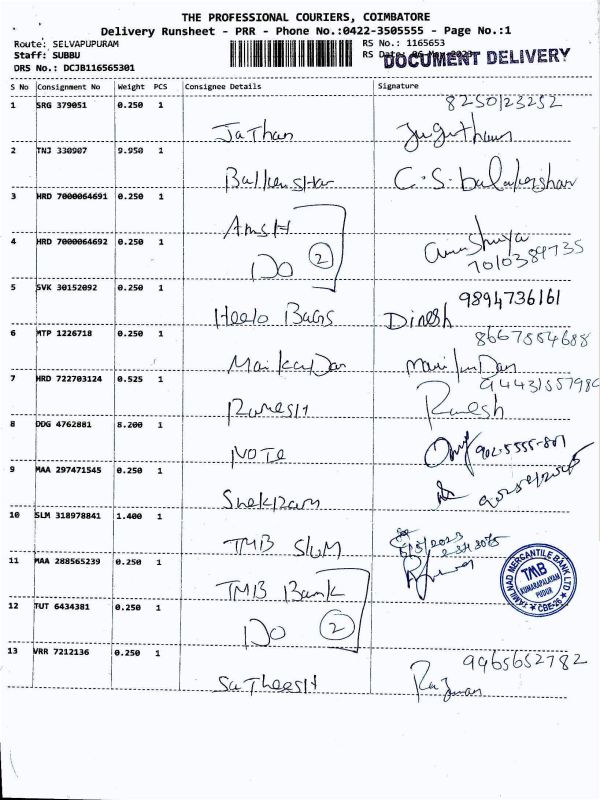 THE PROFESSIONAL COURIERS, COIMBATORE
Delivery Runsheet - PRR - Phone No.:0422-3505555 - Page No.:1
Route: SELVAPUPURAM
RS No.: 1165653
Staff: SUBBU
RS Date: 06 May 2023
DOCUMENT DELIVERY
DRS No.: DCJB116565301
S No Consignment No Weight PCS Consignee Details Signature
1 SRG 379051 0.250 1 8250123252
JaThan
2 TNJ 330907 9.950 1
C.S. balakrishnan
3 HRD 7000064691 0.250 1
AmsH
4 HRD 7000064692 0.250 1
Do 2 7010389735
5 SVK 30152092 0.250 1 9894736161
Heelo Bags Dinesh
6 MTP 1226718 0.250 1 8667554688
7 HRD 722703124 0.525 1
RamesH Ramesh
8 DDG 4762881 8.200 1
NOTE
9 MAA 297471545 0.250 1
10 SLM 318978841 1.400 1
TMB SLM
11 MAA 288565239 0.250 1
TMB Bank
TAMILNAD MERCANTILE BANK LTD
TMB
KUMARAPALAYAM
PUDUR
CBE-26
12 TUT 6434381 0.250 1
Do 2
13 VRR 7212136 0.250 1 9965652782
SaTheesH